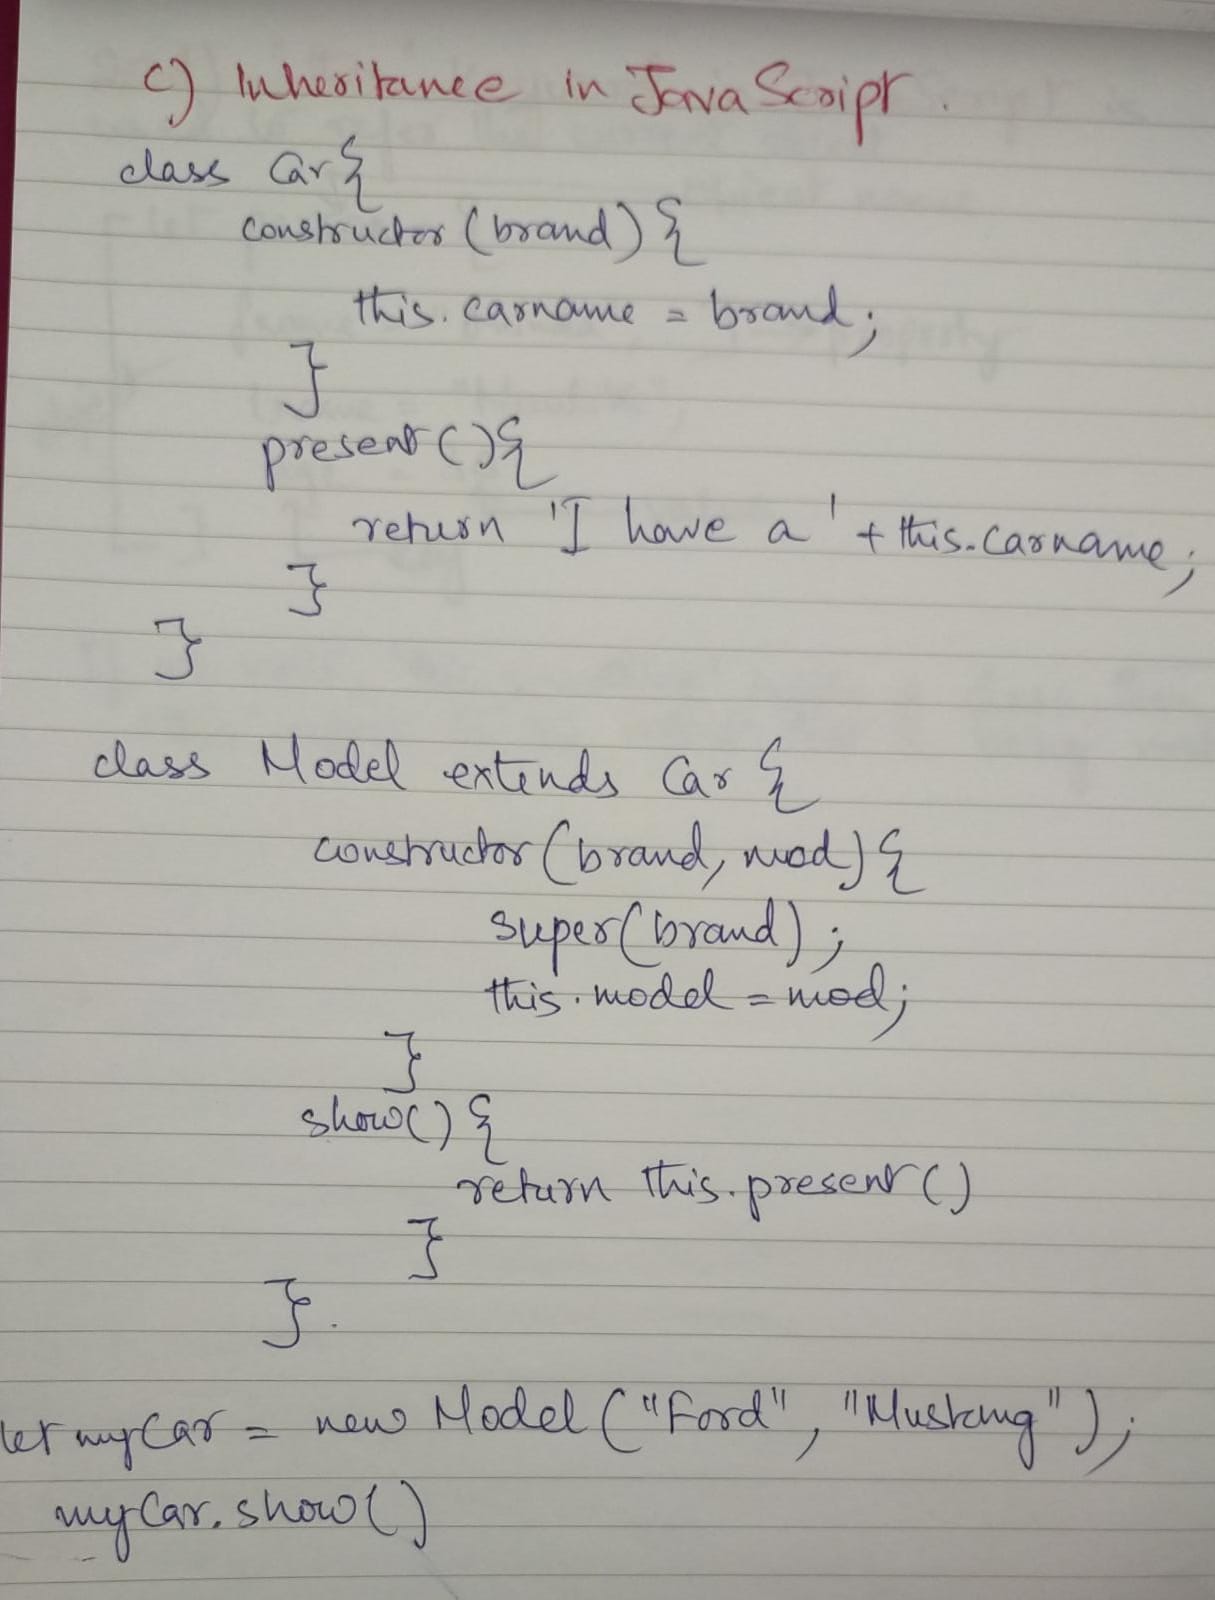 c) Inheritance in JavaScript.
class Car {
constructor (brand) {
this.carname = brand;
}
present () {
return 'I have a' + this.carname;
}
}
class Model extends Car {
constructor (brand, mod) {
super(brand);
this.model = mod;
}
show() {
return this.present()
}
}.
let myCar = new Model ("Ford", "Mustang");
myCar.show()